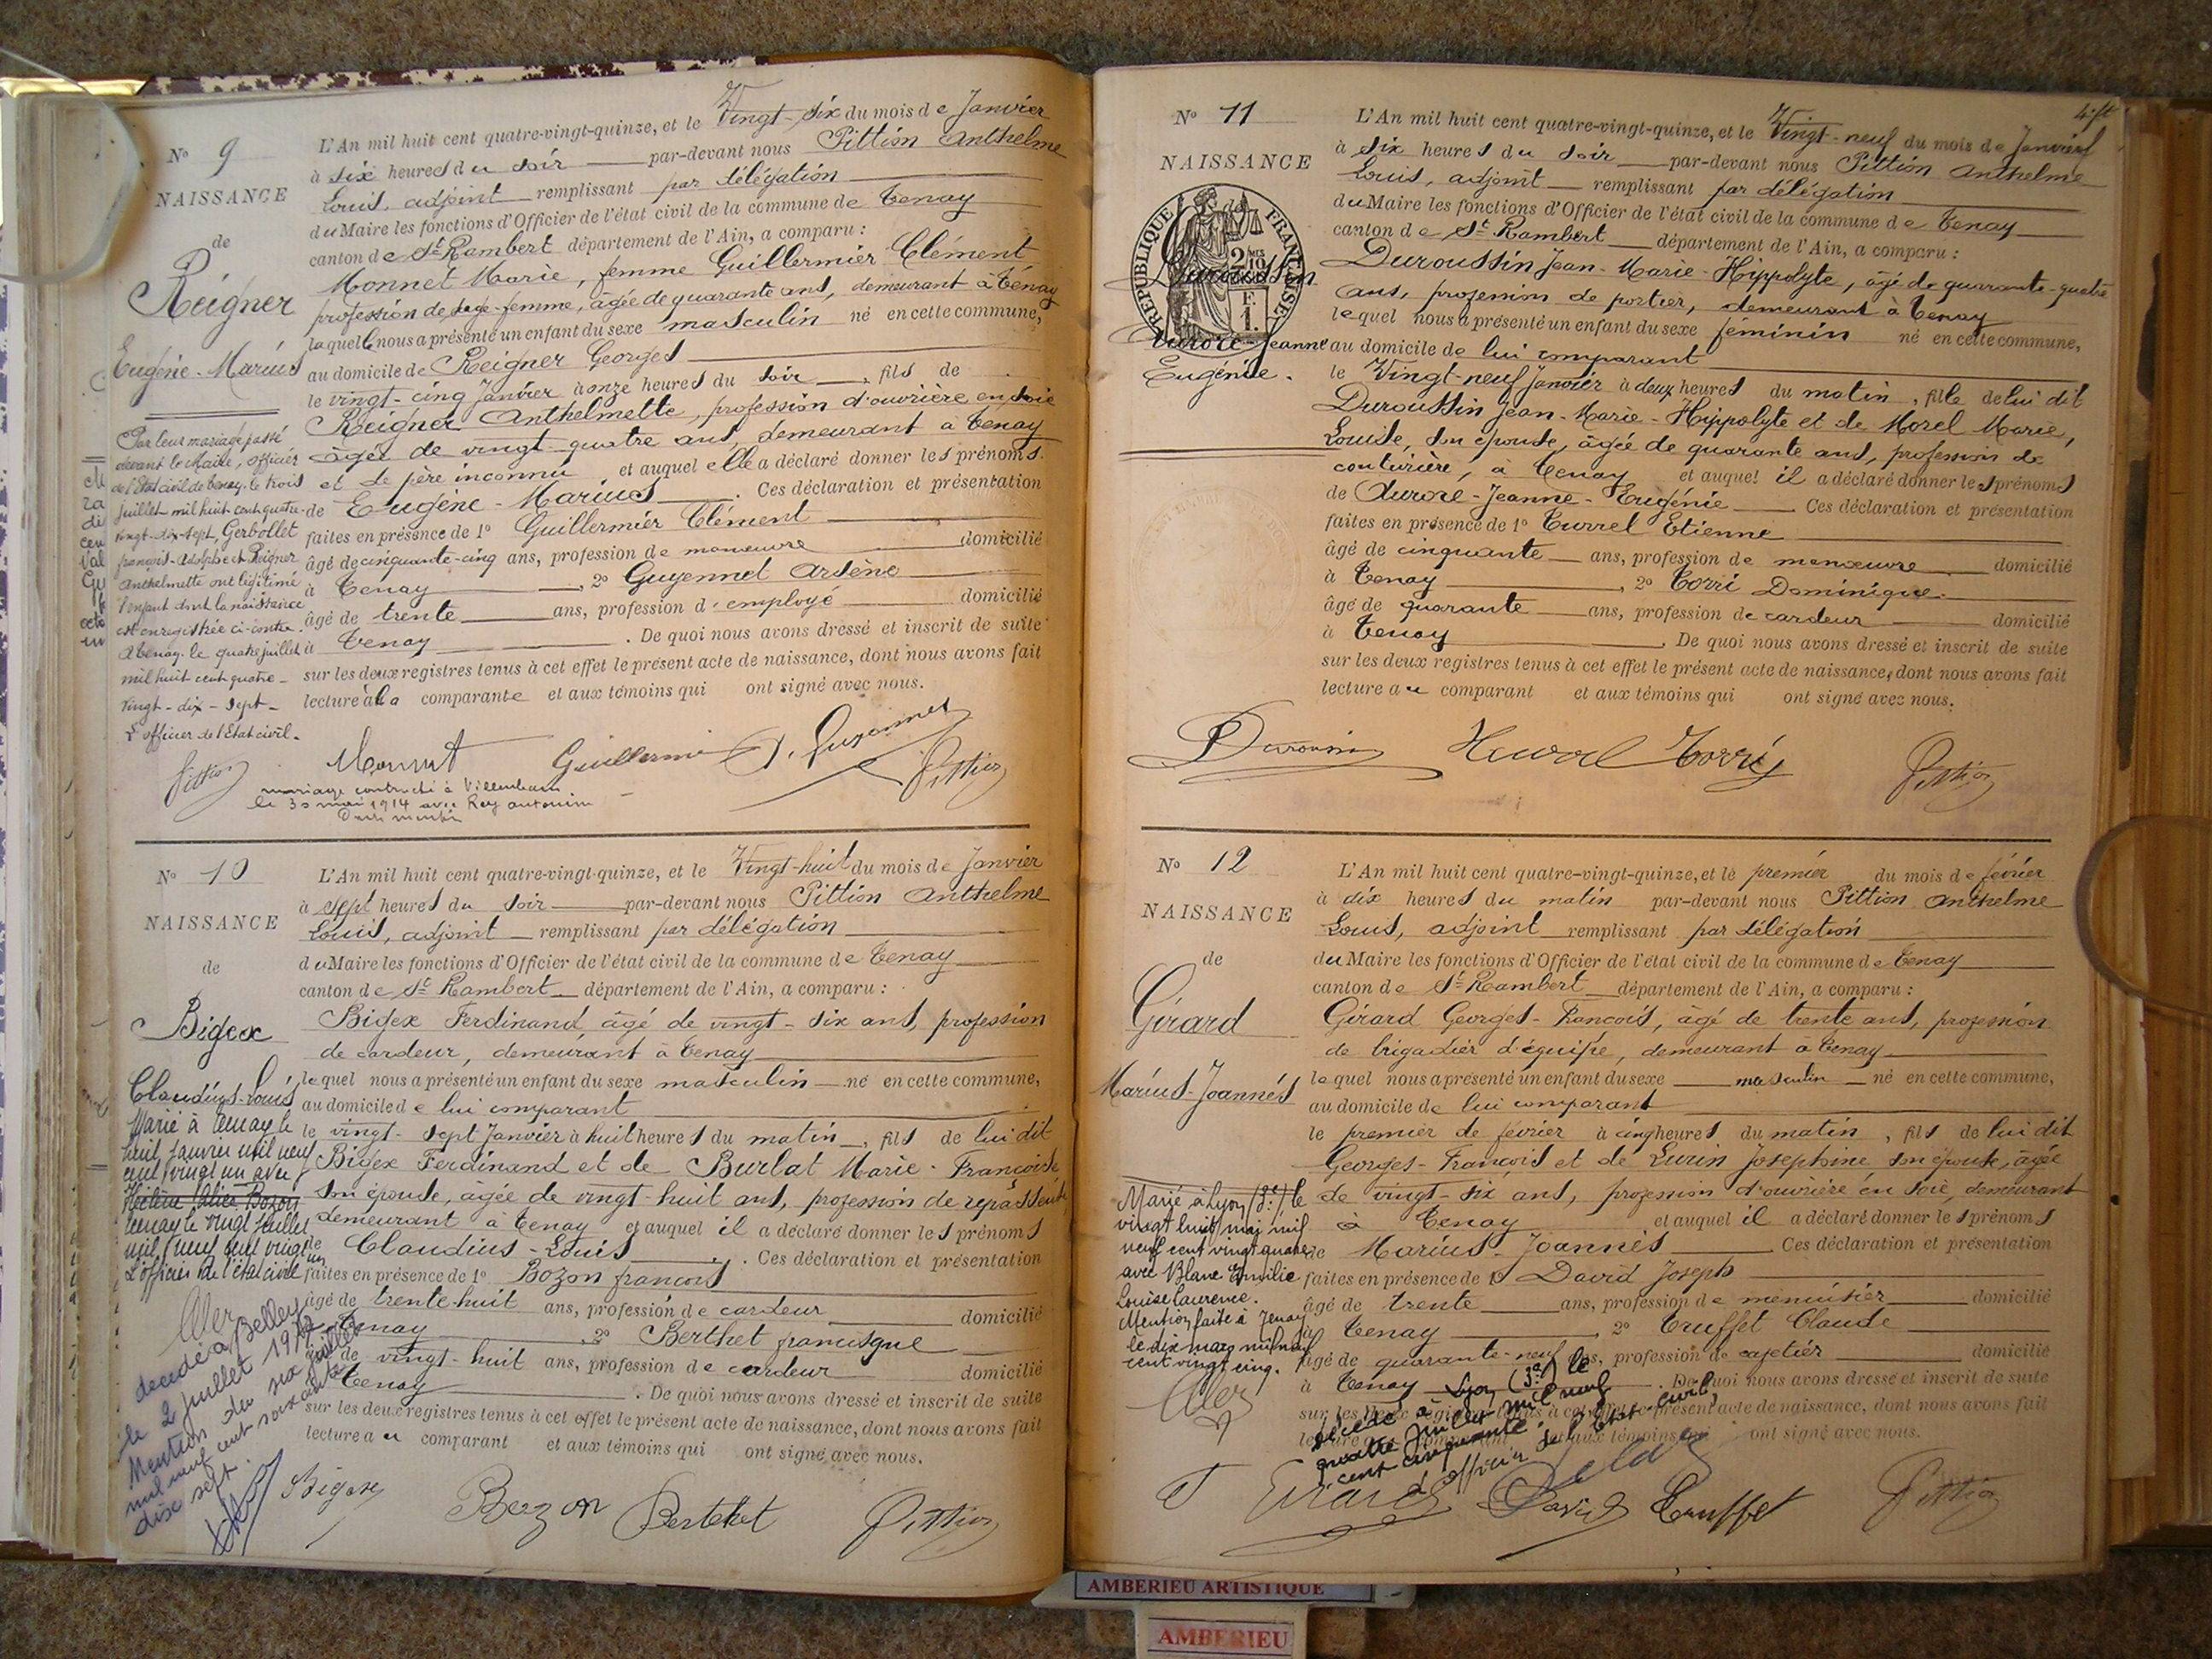 No 9
NAISSANCE
de
Reigner
Eugène-Marius
Par leur mariage passé
devant le Maire, officier
de l'Etat civil de Tenay, le trois
juillet mil huit cent quatre-
vingt-dix-sept, Gerbollet
françois-Adolphe et Reigner
Anthelmette ont légitimé
l'enfant dont la naissance
est enregistrée ci-contre.
A Tenay, le quatre juillet
mil huit cent quatre-
vingt-dix-sept-
L'officier de l'Etat civil.
Pittion
L'An mil huit cent quatre-vingt-quinze, et le Vingt-six du mois de Janvier
à six heures du soir par-devant nous Pittion Anthelme
Louis, adjoint remplissant par délégation
du Maire les fonctions d'Officier de l'état civil de la commune de Tenay
canton de St Rambert département de l'Ain, a comparu :
Monnet Marie, femme Guillermier Clément
profession de sage-femme, âgée de quarante ans, demeurant à Tenay
laquelle nous a présenté un enfant du sexe masculin né en cette commune,
au domicile de Reigner Georges
le vingt-cinq Janvier à onze heures du soir, fils de
Reigner Anthelmette, profession d'ouvrière en soie
âgée de vingt-quatre ans, demeurant à Tenay
et de père inconnu et auquel elle a déclaré donner les prénoms
de Eugène-Marius. Ces déclaration et présentation
faites en présence de 1o Guillermier Clément
âgé de cinquante-cinq ans, profession de manœuvre domicilié
à Tenay, 2o Guyennet Arsène
âgé de trente ans, profession d'employé domicilié
à Tenay. De quoi nous avons dressé et inscrit de suite
sur les deux registres tenus à cet effet le présent acte de naissance, dont nous avons fait
lecture à la comparante et aux témoins qui ont signé avec nous.
Monnet Guillermi A. Guyennet Pittion
mariage contracté à Villeurbanne
le 30 mai 1914 avec Rey Antonin
No 10
NAISSANCE
de
Bigex
Claudius-Louis
Marié à Tenay le
huit janvier mil neuf
cent vingt un avec
Hélène Alice Bozon
Tenay le vingt juillet
mil neuf cent vingt
un
L'officier de l'état civil
décédé à Belley
le 2 juillet
Mention du six juillet
mil neuf cent soixante
dix sept.
L'An mil huit cent quatre-vingt-quinze, et le Vingt-huit du mois de Janvier
à sept heures du soir par-devant nous Pittion Anthelme
Louis, adjoint remplissant par délégation
du Maire les fonctions d'Officier de l'état civil de la commune de Tenay
canton de St Rambert département de l'Ain, a comparu :
Bigex Ferdinand, âgé de vingt-six ans, profession
de cardeur, demeurant à Tenay
lequel nous a présenté un enfant du sexe masculin né en cette commune,
au domicile de lui comparant
le vingt-sept Janvier à huit heures du matin, fils de lui dit
Bigex Ferdinand et de Burlat Marie-Françoise
son épouse, âgée de vingt-huit ans, profession de repasseuse
demeurant à Tenay et auquel il a déclaré donner les prénoms
de Claudius-Louis. Ces déclaration et présentation
faites en présence de 1o Bozon françois
âgé de trente-huit ans, profession de cardeur domicilié
à Tenay, 2o Berthet francisque
âgé de vingt-huit ans, profession de cardeur domicilié
à Tenay. De quoi nous avons dressé et inscrit de suite
sur les deux registres tenus à cet effet le présent acte de naissance, dont nous avons fait
lecture au comparant et aux témoins qui ont signé avec nous.
Bigex Bozon Berthet Pittion
No 11
NAISSANCE
RÉPUBLIQUE FRANÇAISE
Duroussin
Aurore-Jeanne
Eugénie.
L'An mil huit cent quatre-vingt-quinze, et le Vingt-neuf du mois de Janvier
à six heures du soir par-devant nous Pittion Anthelme
Louis, adjoint remplissant par délégation
du Maire les fonctions d'Officier de l'état civil de la commune de Tenay
canton de St Rambert département de l'Ain, a comparu :
Duroussin Jean-Marie-Hippolyte, âgé de quarante-quatre
ans, profession de portier, demeurant à Tenay
lequel nous a présenté un enfant du sexe féminin né en cette commune,
au domicile de lui comparant
le Vingt-neuf Janvier à deux heures du matin, fille de lui dit
Duroussin Jean-Marie-Hippolyte et de Morel Marie,
Louise, son épouse, âgée de quarante ans, profession de
couturière, à Tenay et auquel il a déclaré donner les prénoms
de Aurore-Jeanne-Eugénie Ces déclaration et présentation
faites en présence de 1o Turrel Etienne
âgé de cinquante ans, profession de manœuvre domicilié
à Tenay, 2o Torri Dominique.
âgé de quarante ans, profession de cardeur domicilié
à Tenay. De quoi nous avons dressé et inscrit de suite
sur les deux registres tenus à cet effet le présent acte de naissance, dont nous avons fait
lecture au comparant et aux témoins qui ont signé avec nous.
Duroussin Torri Pittion
No 12
NAISSANCE
de
Girard
Marius-Joannès
Marié à Lyon (3e) le
vingt huit mai mil
neuf cent vingt quatre
avec Blanc Emilie
Louise Laurence.
Mention faite à Tenay
le dix mars mil neuf
cent vingt cinq.
L'An mil huit cent quatre-vingt-quinze, et le premier du mois de février
à dix heures du matin par-devant nous Pittion Anthelme
Louis, adjoint remplissant par délégation
du Maire les fonctions d'Officier de l'état civil de la commune de Tenay
canton de St Rambert département de l'Ain, a comparu :
Girard Georges-François, âgé de trente ans, profession
de brigadier d'équipe, demeurant à Tenay
lequel nous a présenté un enfant du sexe masculin né en cette commune,
au domicile de lui comparant
le premier de février à cinq heures du matin, fils de lui dit
Georges-François et de Lurin Josephine son épouse, âgée
de vingt-six ans, profession d'ouvrière en soie, demeurant
à Tenay et auquel il a déclaré donner les prénoms
de Marius-Joannès Ces déclaration et présentation
faites en présence de 1o David Joseph
âgé de trente ans, profession de menuisier domicilié
à Tenay, 2o Truffet Claude
âgé de quarante-neuf ans, profession de cafetier domicilié
à Tenay. De quoi nous avons dressé et inscrit de suite
sur les deux registres tenus à cet effet le présent acte de naissance, dont nous avons fait
lecture au comparant et aux témoins qui ont signé avec nous.
Décédé à Lyon (3e) le
quatre juillet mil neuf
cent cinquante
L'officier de l'Etat-civil,
Girard David Truffet Pittion
AMBERIEU ARTISTIQUE
AMBERIEU